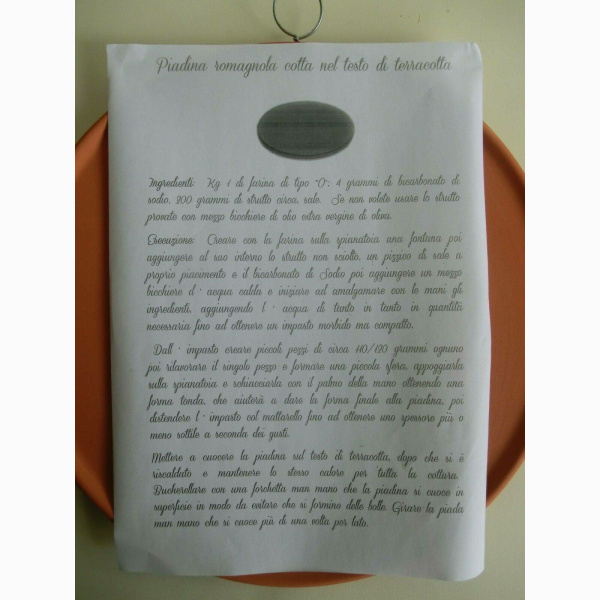 Piadina romagnola cotta nel testo di terracotta
Ingredienti: Kg 1 di farina di tipo "0"; 4 grammi di bicarbonato di
sodio, 200 grammi di strutto circa, sale. Se non volete usare lo strutto
provate con mezzo bicchiere di olio extra vergine di oliva.
Esecuzione: Creare con la farina sulla spianatoia una fontana poi
aggiungere al suo interno lo strutto non sciolto, un pizzico di sale a
proprio piacimento e il bicarbonato di Sodio poi aggiungere un mezzo
bicchiere d' acqua calda e iniziare ad amalgamare con le mani gli
ingredienti, aggiungendo l' acqua di tanto in tanto in quantità
necessaria fino ad ottenere un impasto morbido ma compatto.
Dall' impasto creare piccoli pezzi di circa 110/120 grammi ognuno
poi rilavorare il singolo pezzo e formare una piccola sfera, appoggiarla
sulla spianatoia e schiacciarla con il palmo della mano ottenendo una
forma tonda, che aiuterà a dare la forma finale alla piadina, poi
distendere l' impasto col mattarello fino ad ottenere uno spessore più o
meno sottile a seconda dei gusti.
Mettere a cuocere la piadina sul testo di terracotta, dopo che si è
riscaldato e mantenere lo stesso calore per tutta la cottura.
Bucherellare con una forchetta man mano che la piadina si cuoce in
superficie in modo da evitare che si formino delle bolle. Girare la piada
man mano che si cuoce più di una volta per lato.